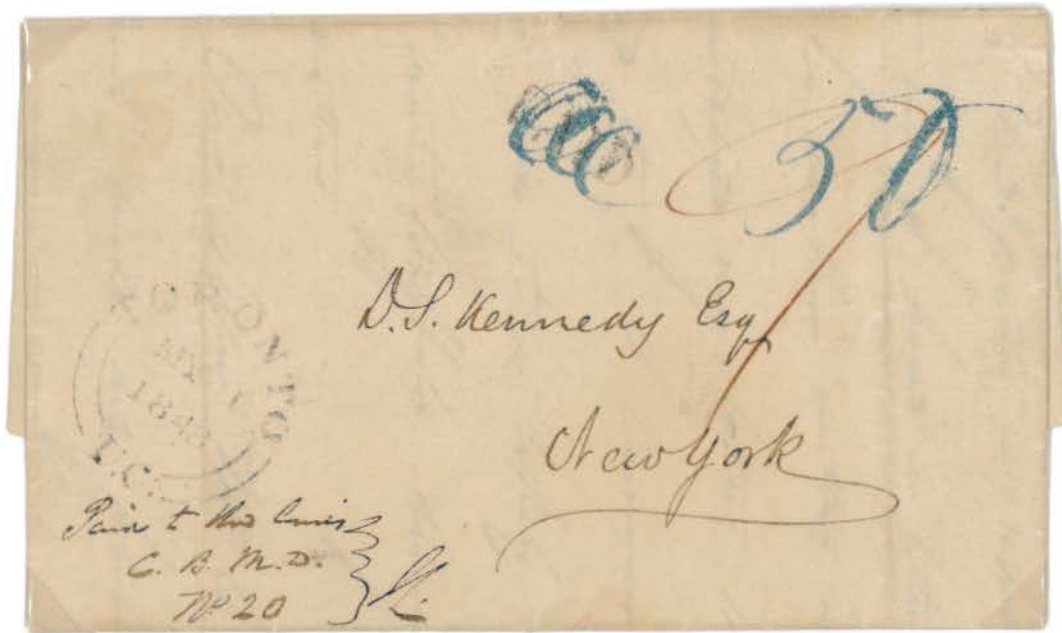 50
D. S. Kennedy Esq
New York
TORONTO
MY
184
U.C.
Paid to the Lines
C. B. M. D.
No 20